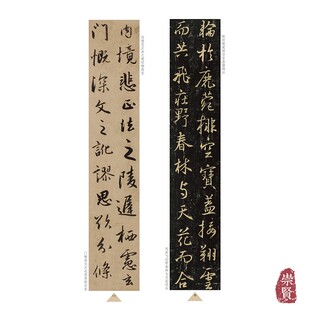 内境悲正法之陵遲栖慮玄
門慨深文之訛謬思欲分條
輪於鹿苑排空寶蓋接翔雲
而共飛庄野春林与天花而合
崇賢